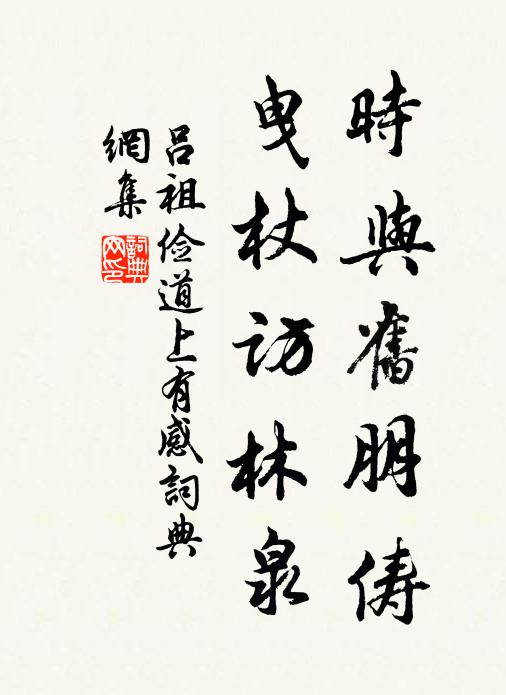 時與舊朋儔
曳杖訪林泉
呂祖儉道上有感詞典
網集
詞典
网印